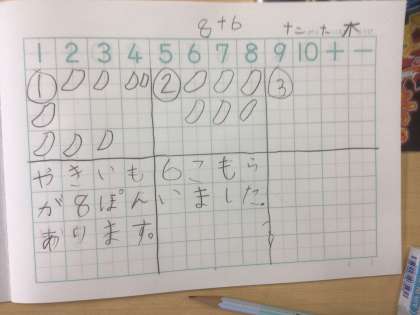 8+6
1 2 3 4 5 6 7 8 9 10 + −
① ② ③
やきいも
が8ぽん
あります。
6こもら
いました。